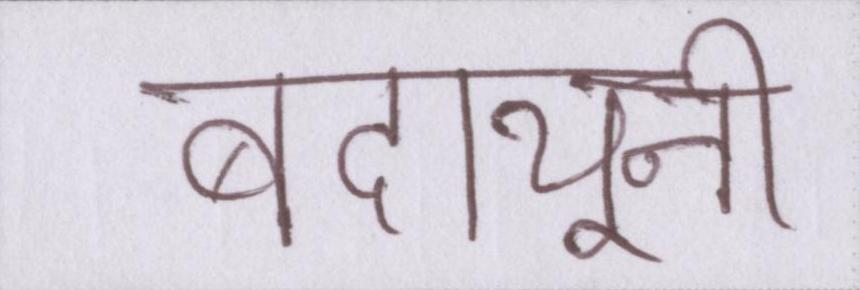 बदायूनी